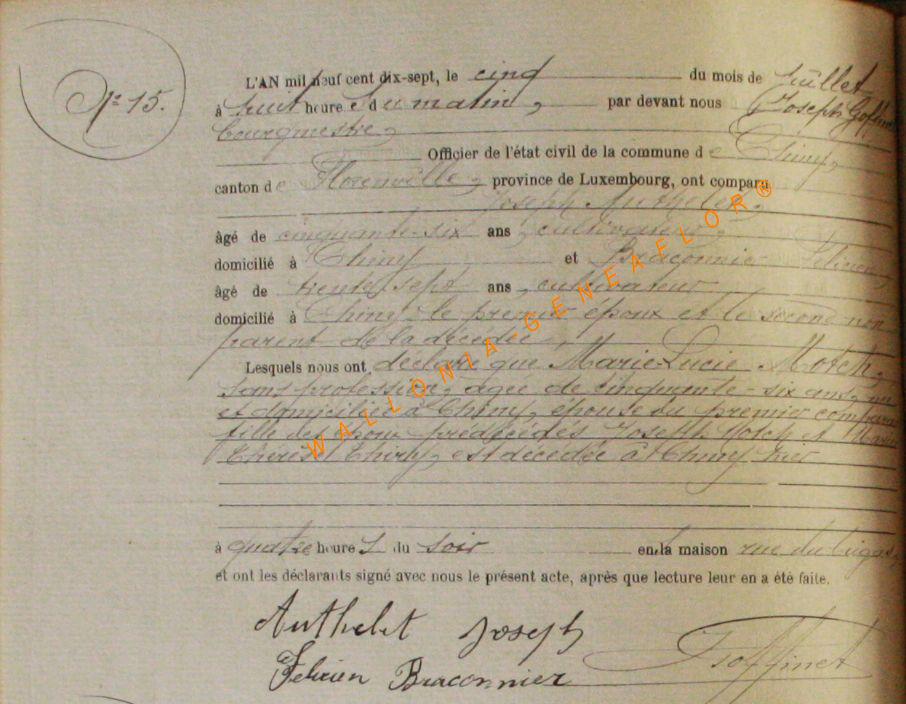 N° 15.
L'AN mil neuf cent dix-sept, le cinq du mois de juillet
à huit heures du matin, par devant nous Joseph Goffinet
bourgmestre,
Officier de l'état civil de la commune de Chiny,
canton de Florenville, province de Luxembourg, ont comparu
Joseph Authelet,
âgé de cinquante-six ans, cultivateur,
domicilié à Chiny et Braconnier Felicien,
âgé de trente sept ans, cultivateur
domicilié à Chiny le premier époux et le second non
parent de la décédée
Lesquels nous ont déclaré que Marie Lucie Motch,
sans profession, agée de cinquante-six ans, née
et domiciliée à Chiny, épouse du premier compara
fille des époux prédécédés Joseph Motch et Marie
Thérèse Thiry, est décédée à Chiny hier
à quatre heures du soir en la maison rue du
et ont les déclarants signé avec nous le présent acte, après que lecture leur en a été faite.
Authelet Joseph
Felicien Braconnier
J Goffinet
WALLONIA-GENEAFLOR®